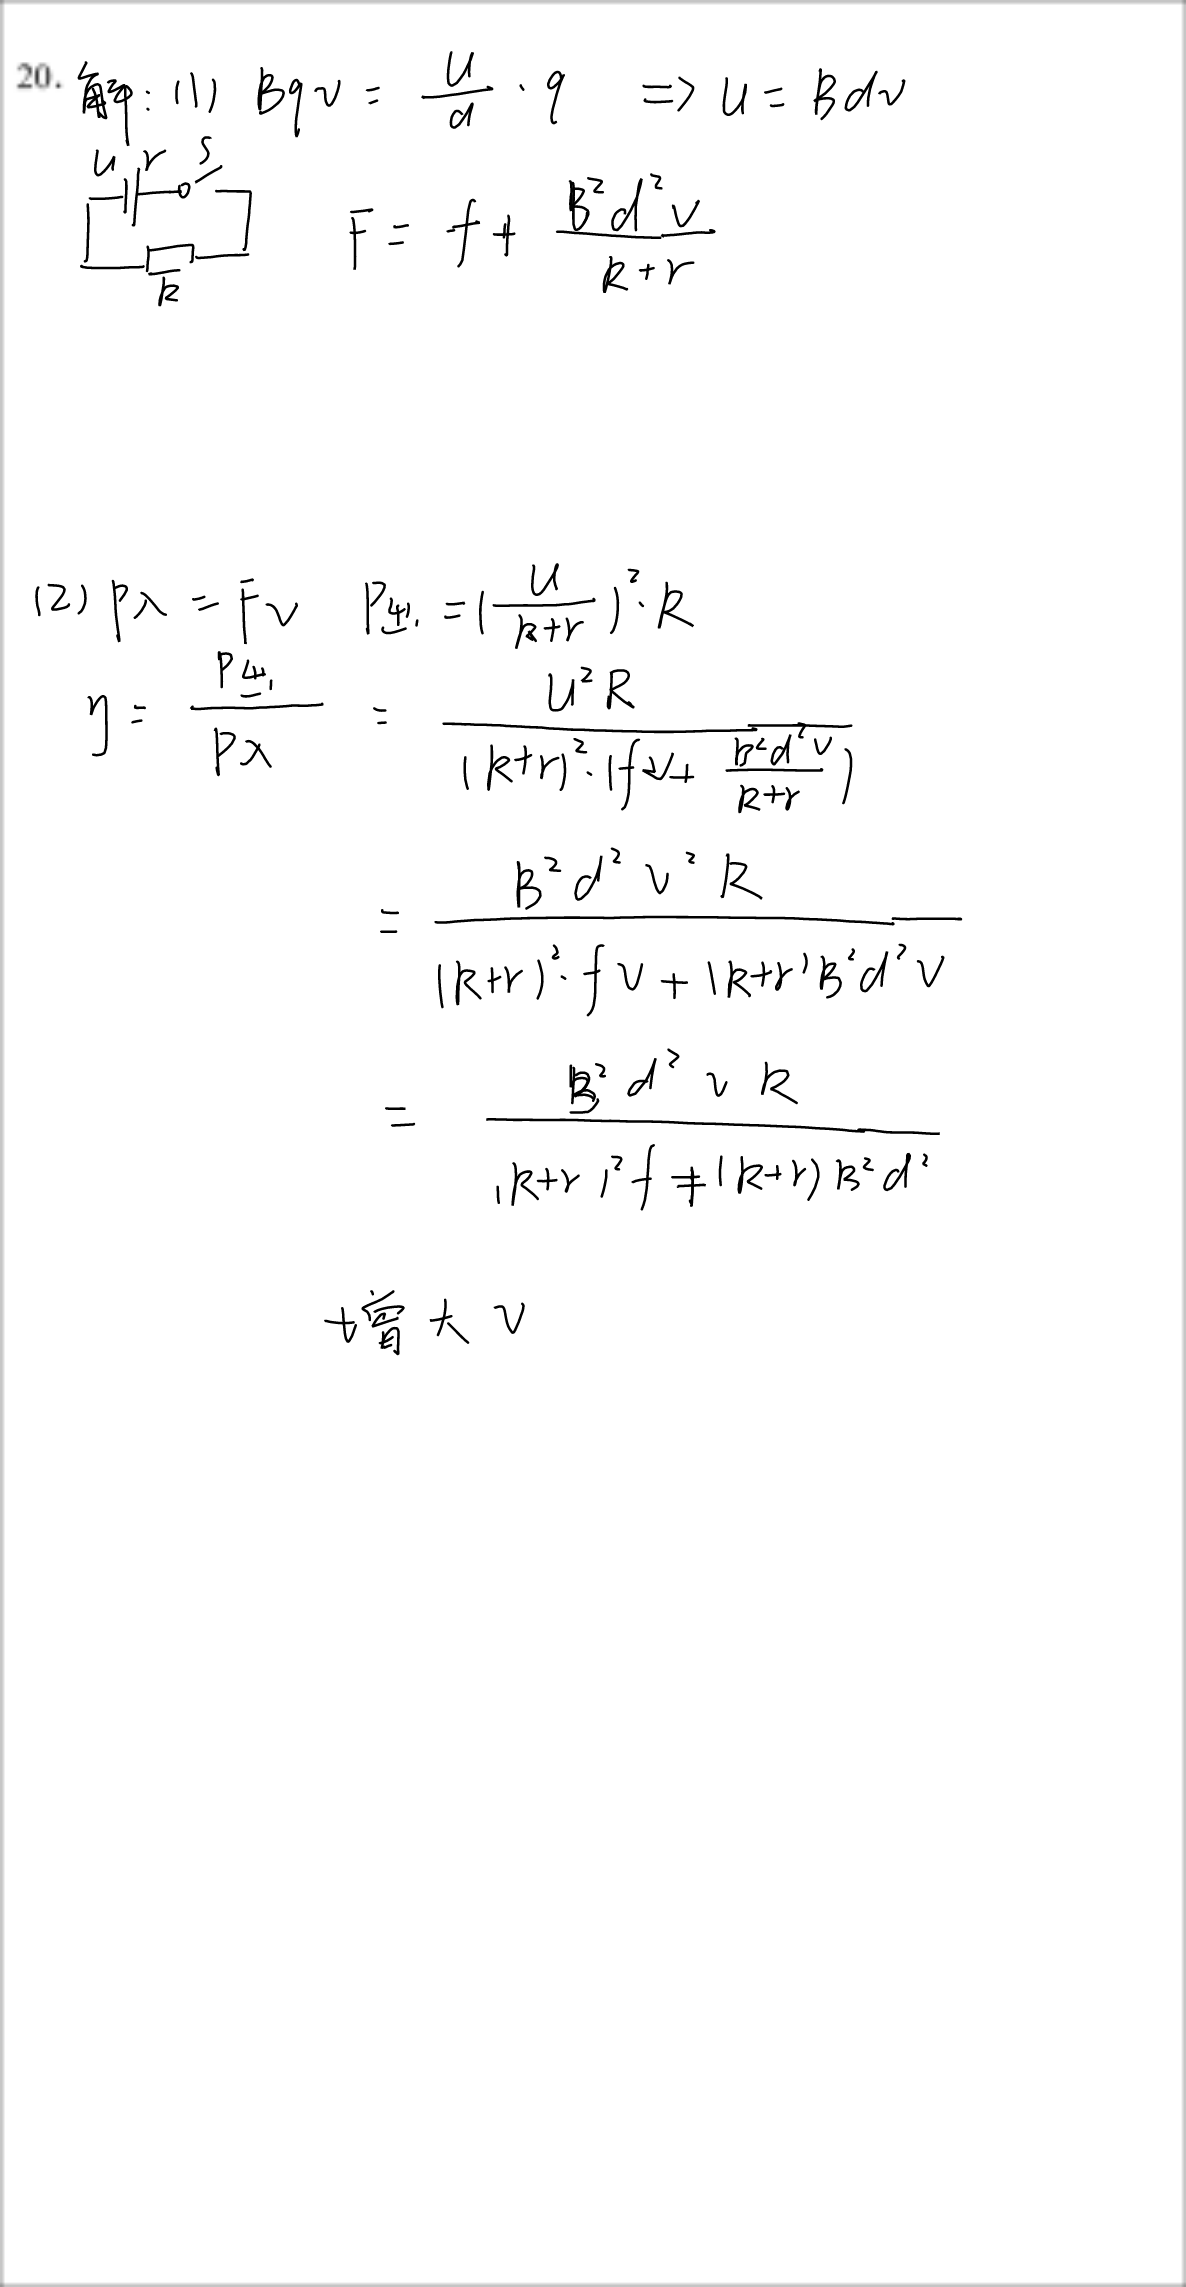 20. 解:(1) Bqv = U/d · q => U = Bdv
U r S
F = f + B²d²v/(R+r)
R
(2) P入 = Fv P出 = (U/(R+r))² · R
η = P出/P入 = U²R/((R+r)² · (fv + B²d²v/(R+r)))
= B²d²v²R/((R+r)² · fv + (R+r)B²d²v)
= B²d²vR/((R+r)²f + (R+r)B²d²)
增大 v